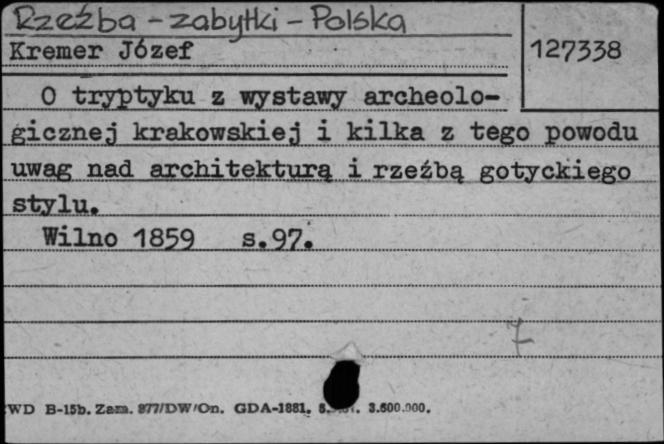 Rzeźba - zabytki - Polska
Kremer Józef
127338
O tryptyku z wystawy archeolo-
gicznej krakowskiej i kilka z tego powodu
uwag nad architekturą i rzeźbą gotyckiego
stylu.
Wilno 1859 s.97.
WD B-15b. Zam. 877/DW/On. GDA-1881. 3.600.000.